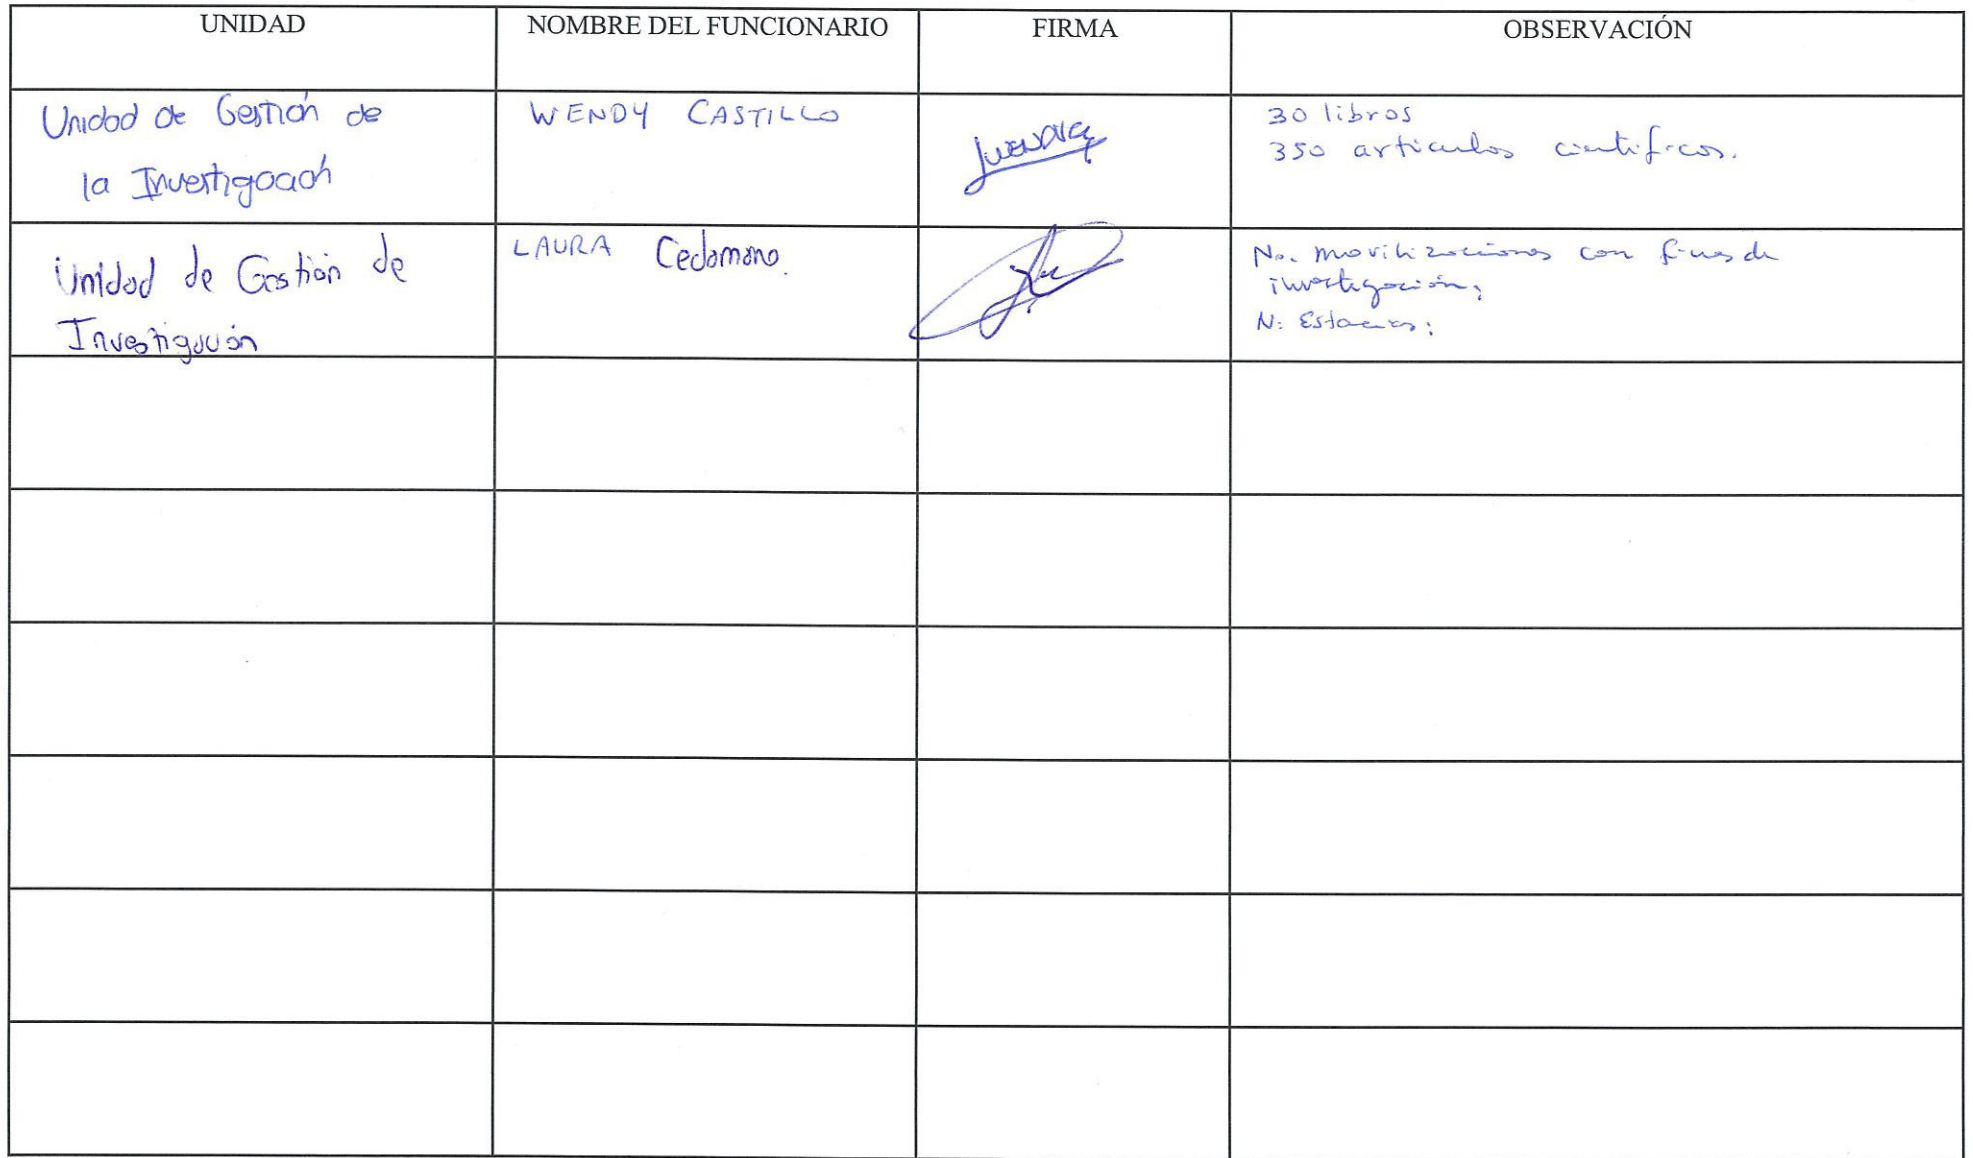 UNIDAD NOMBRE DEL FUNCIONARIO FIRMA OBSERVACIÓN
Unidad de Gestión de
la Investigación
WENDY CASTILLO
30 libros
350 articulos cientificos.
Unidad de Gestión de
Investigación
LAURA Cedamano.
No. movilizaciones con fines de
investigación;
N: